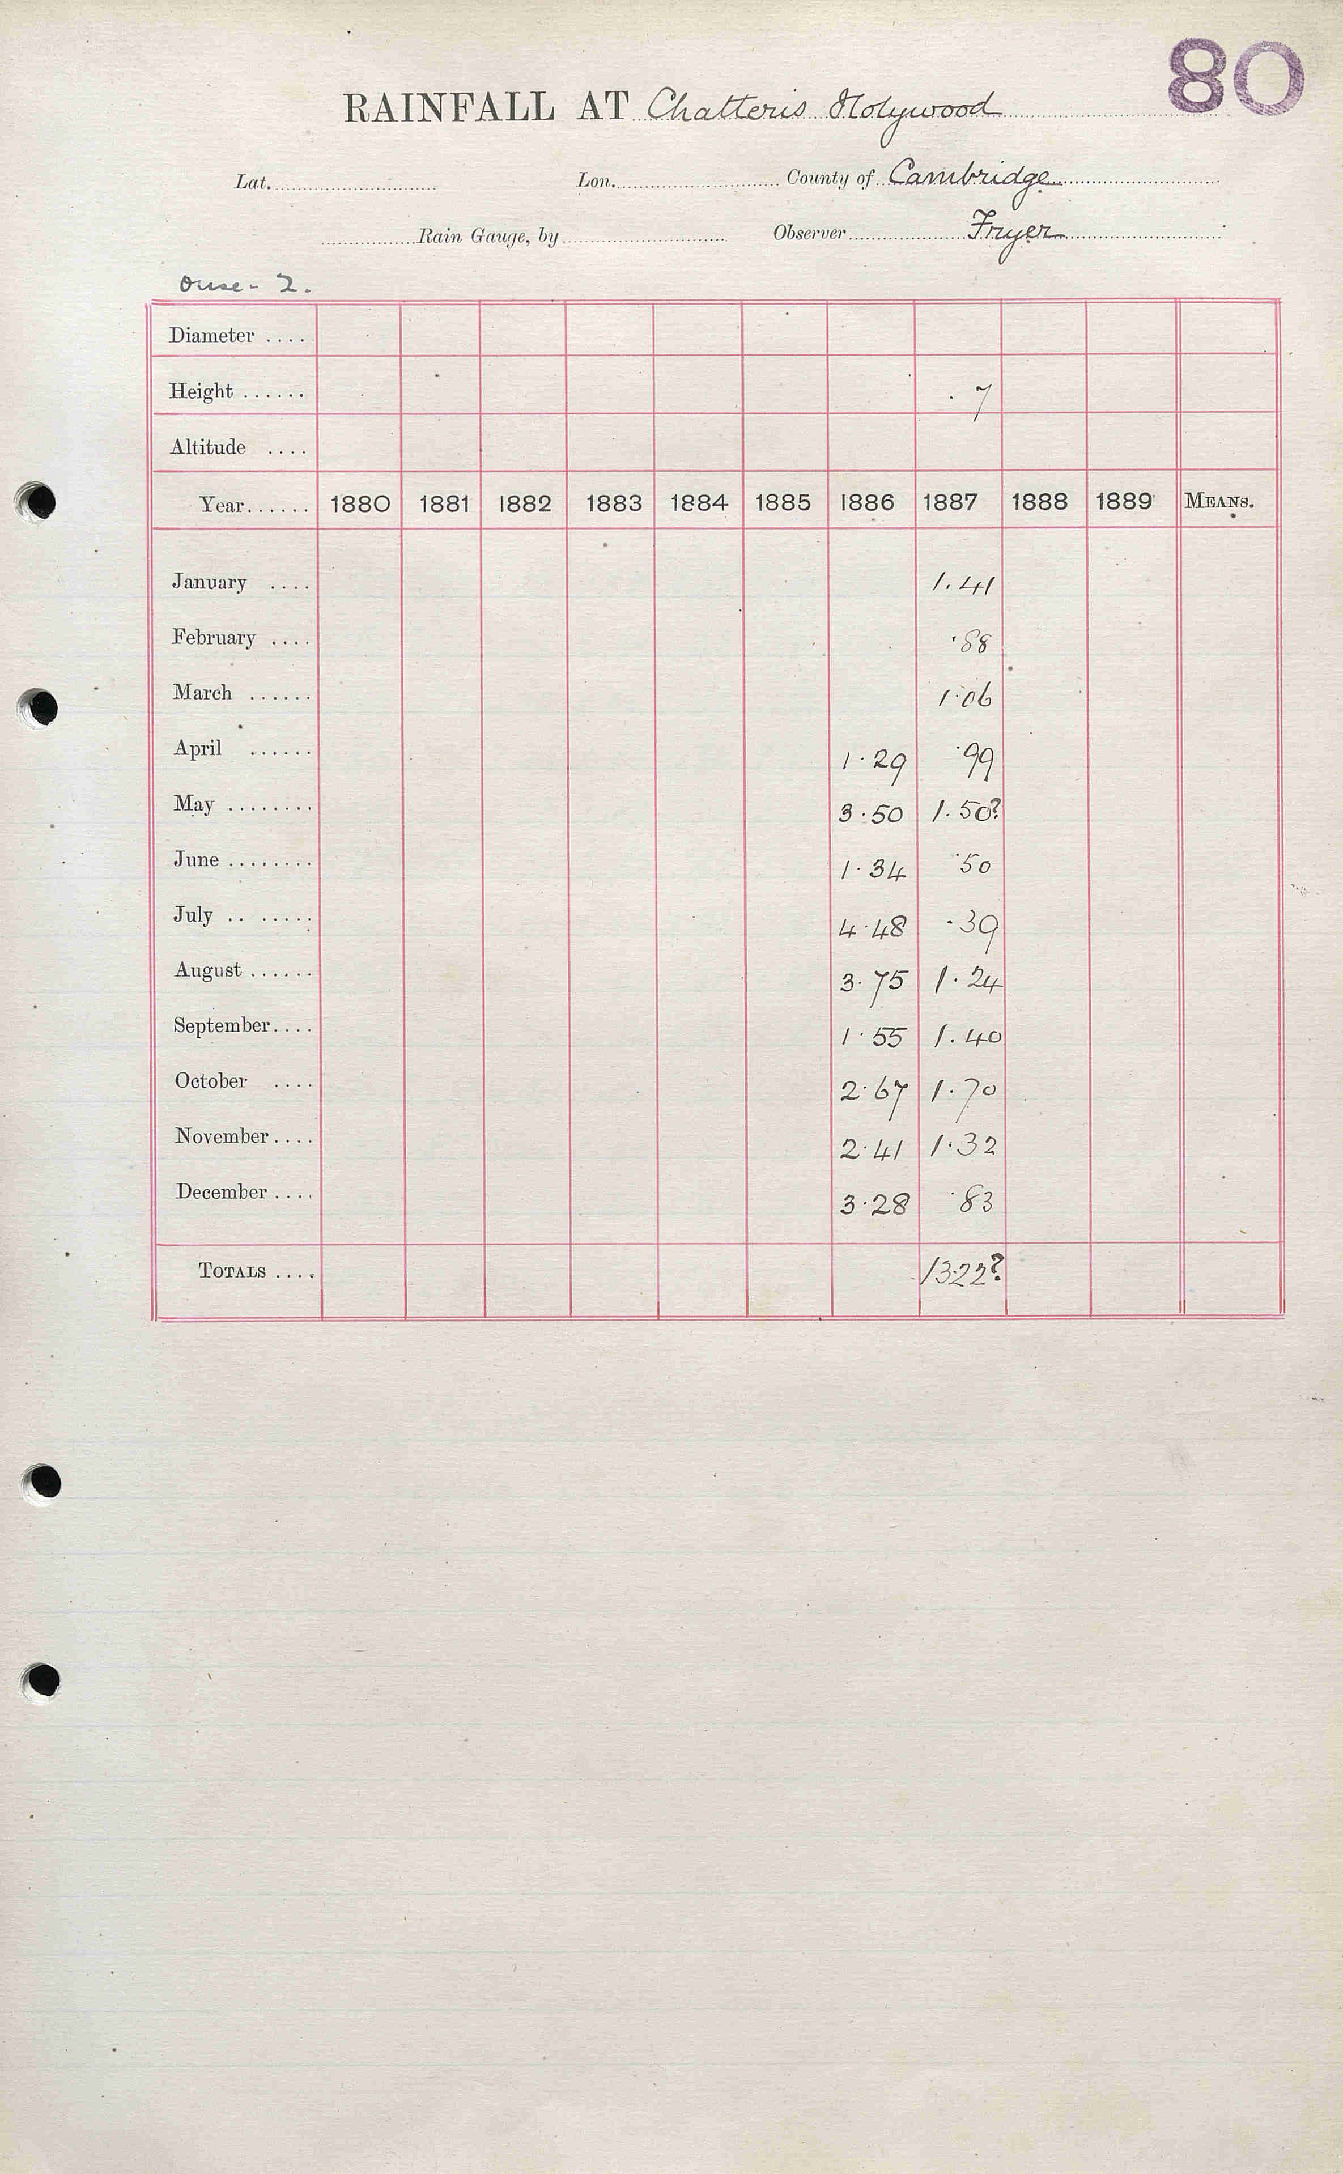 80
RAINFALL AT Chatteris Holywood
Lat. Lon. County of Cambridge
Rain Gauge, by Observer Fryer
Ouse - 2.
Diameter ....
Height ...... .7
Altitude ....
Year...... 1880 1881 1882 1883 1884 1885 1886 1887 1888 1889 MEANS.
January .... 1.41
February .... .88
March ...... 1.06
April ...... 1.29 .99
May ........ 3.50 1.50?
June ........ 1.34 .50
July .. ..... 4.48 .39
August ...... 3.75 1.24
September.... 1.55 1.40
October .... 2.67 1.70
November.... 2.41 1.32
December .... 3.28 .83
TOTALS .... 13.22?